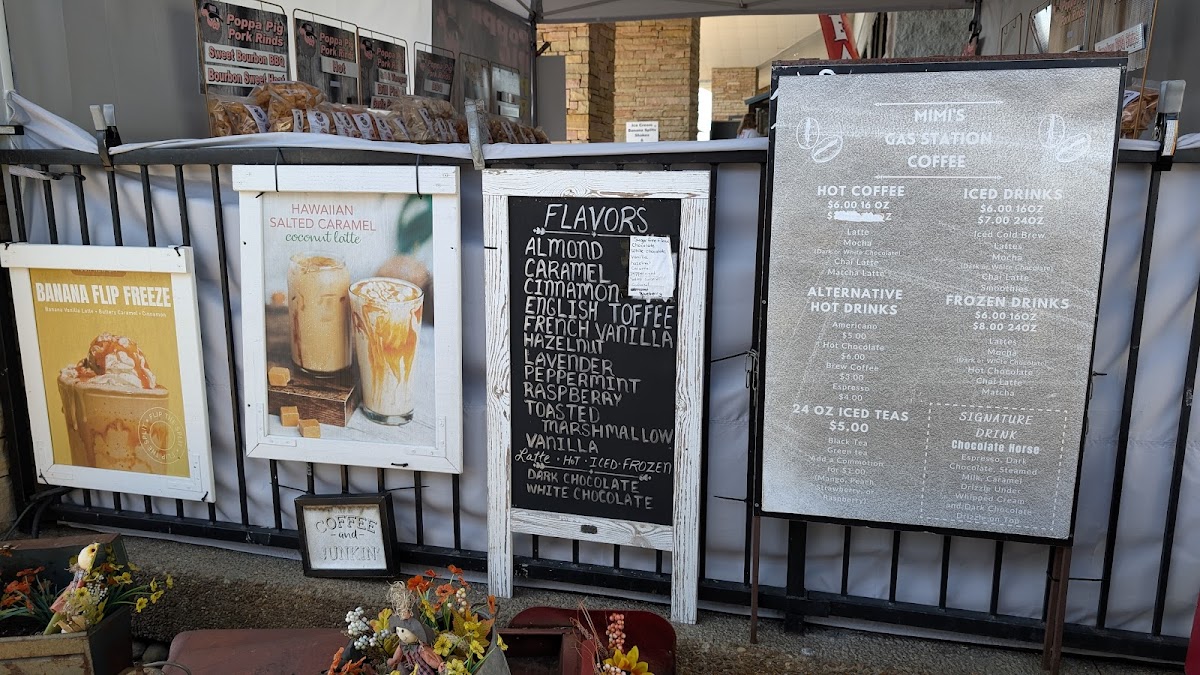 Poppa Pig
Pork Rinds
Sweet Bourbon BBQ
Poppa Pig
Pork Rinds
Hot
BANANA FLIP FREEZE
Banana Vanilla Latte • Buttery Caramel • Cinnamon
HAWAIIAN
SALTED CARAMEL
coconut latte
COFFEE
and
JUNKIN
FLAVORS
ALMOND
CARAMEL
CINNAMON
ENGLISH TOFFEE
FRENCH VANILLA
HAZELNUT
LAVENDER
PEPPERMINT
RASPBERRY
TOASTED
MARSHMALLOW
VANILLA
Latte • HOT • ICED • FROZEN
DARK CHOCOLATE
WHITE CHOCOLATE
Chocolate
White chocolate
Vanilla
MIMI'S
GAS STATION
COFFEE
HOT COFFEE
$6.00 16 OZ
Latte
Mocha
(Dark or White Chocolate)
Chai Latte
Matcha Latte
ALTERNATIVE
HOT DRINKS
Americano
$5.00
Hot Chocolate
$6.00
Brew Coffee
$3.00
Espresso
$4.00
24 OZ ICED TEAS
$5.00
Black Tea
Green tea
Add a Commotion
for $1.00
(Mango, Peach,
Strawberry, or
Raspberry)
ICED DRINKS
$6.00 16OZ
$7.00 24OZ
Iced Cold Brew
Lattes
Mocha
(Dark or White Chocolate)
Chai Latte
Smoothies
FROZEN DRINKS
$6.00 16OZ
$8.00 24OZ
Lattes
Mocha
(Dark or White Chocolate)
Hot Chocolate
Chai Latte
Matcha
SIGNATURE
DRINK
Chocolate Horse
Espresso, Dark
Chocolate, Steamed
Milk, Caramel
Drizzle Under
Whipped Cream
and Dark Chocolate
Drizzle on Top